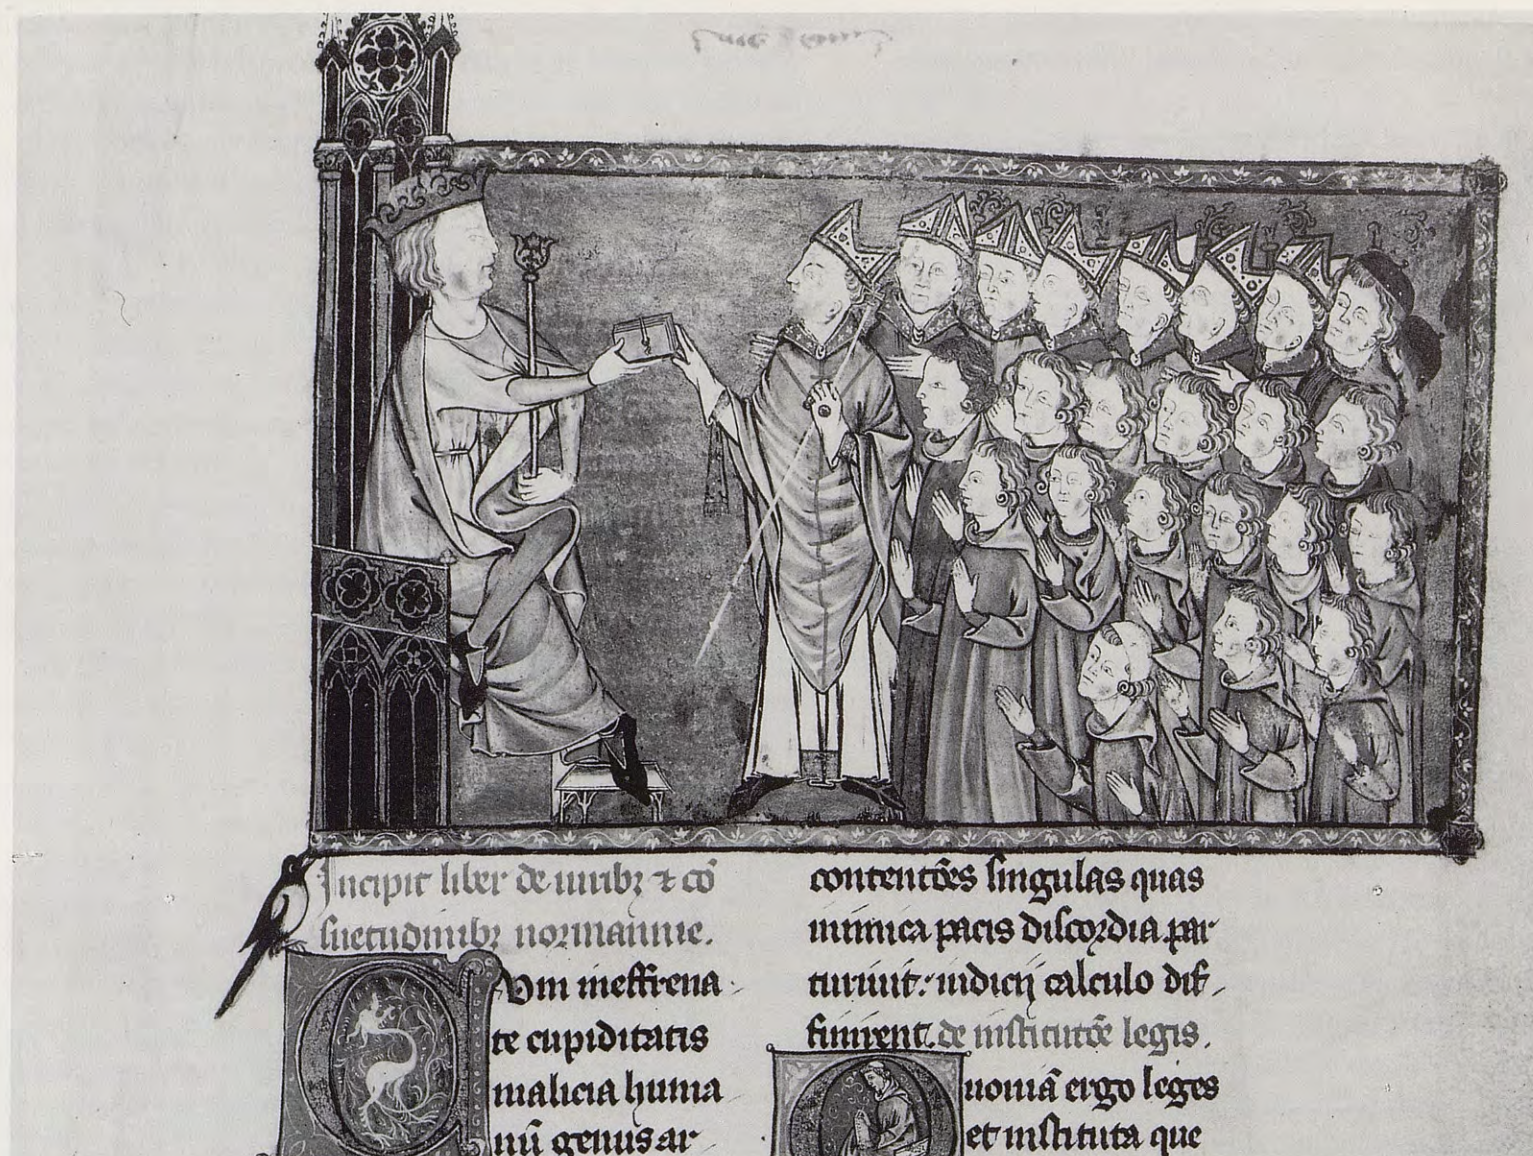 Incipit liber de iuribꝫ ⁊ cō
suetudinibꝫ normannie.
Cum ineffrena
te cupiditatis
malicia huma
nū genus ar
contentōes singulas quas
inimica pacis discordia par
turiuit: iudicij calculo dif
finirent. de institutōe legis.
Quoniā ergo leges
et instituta que